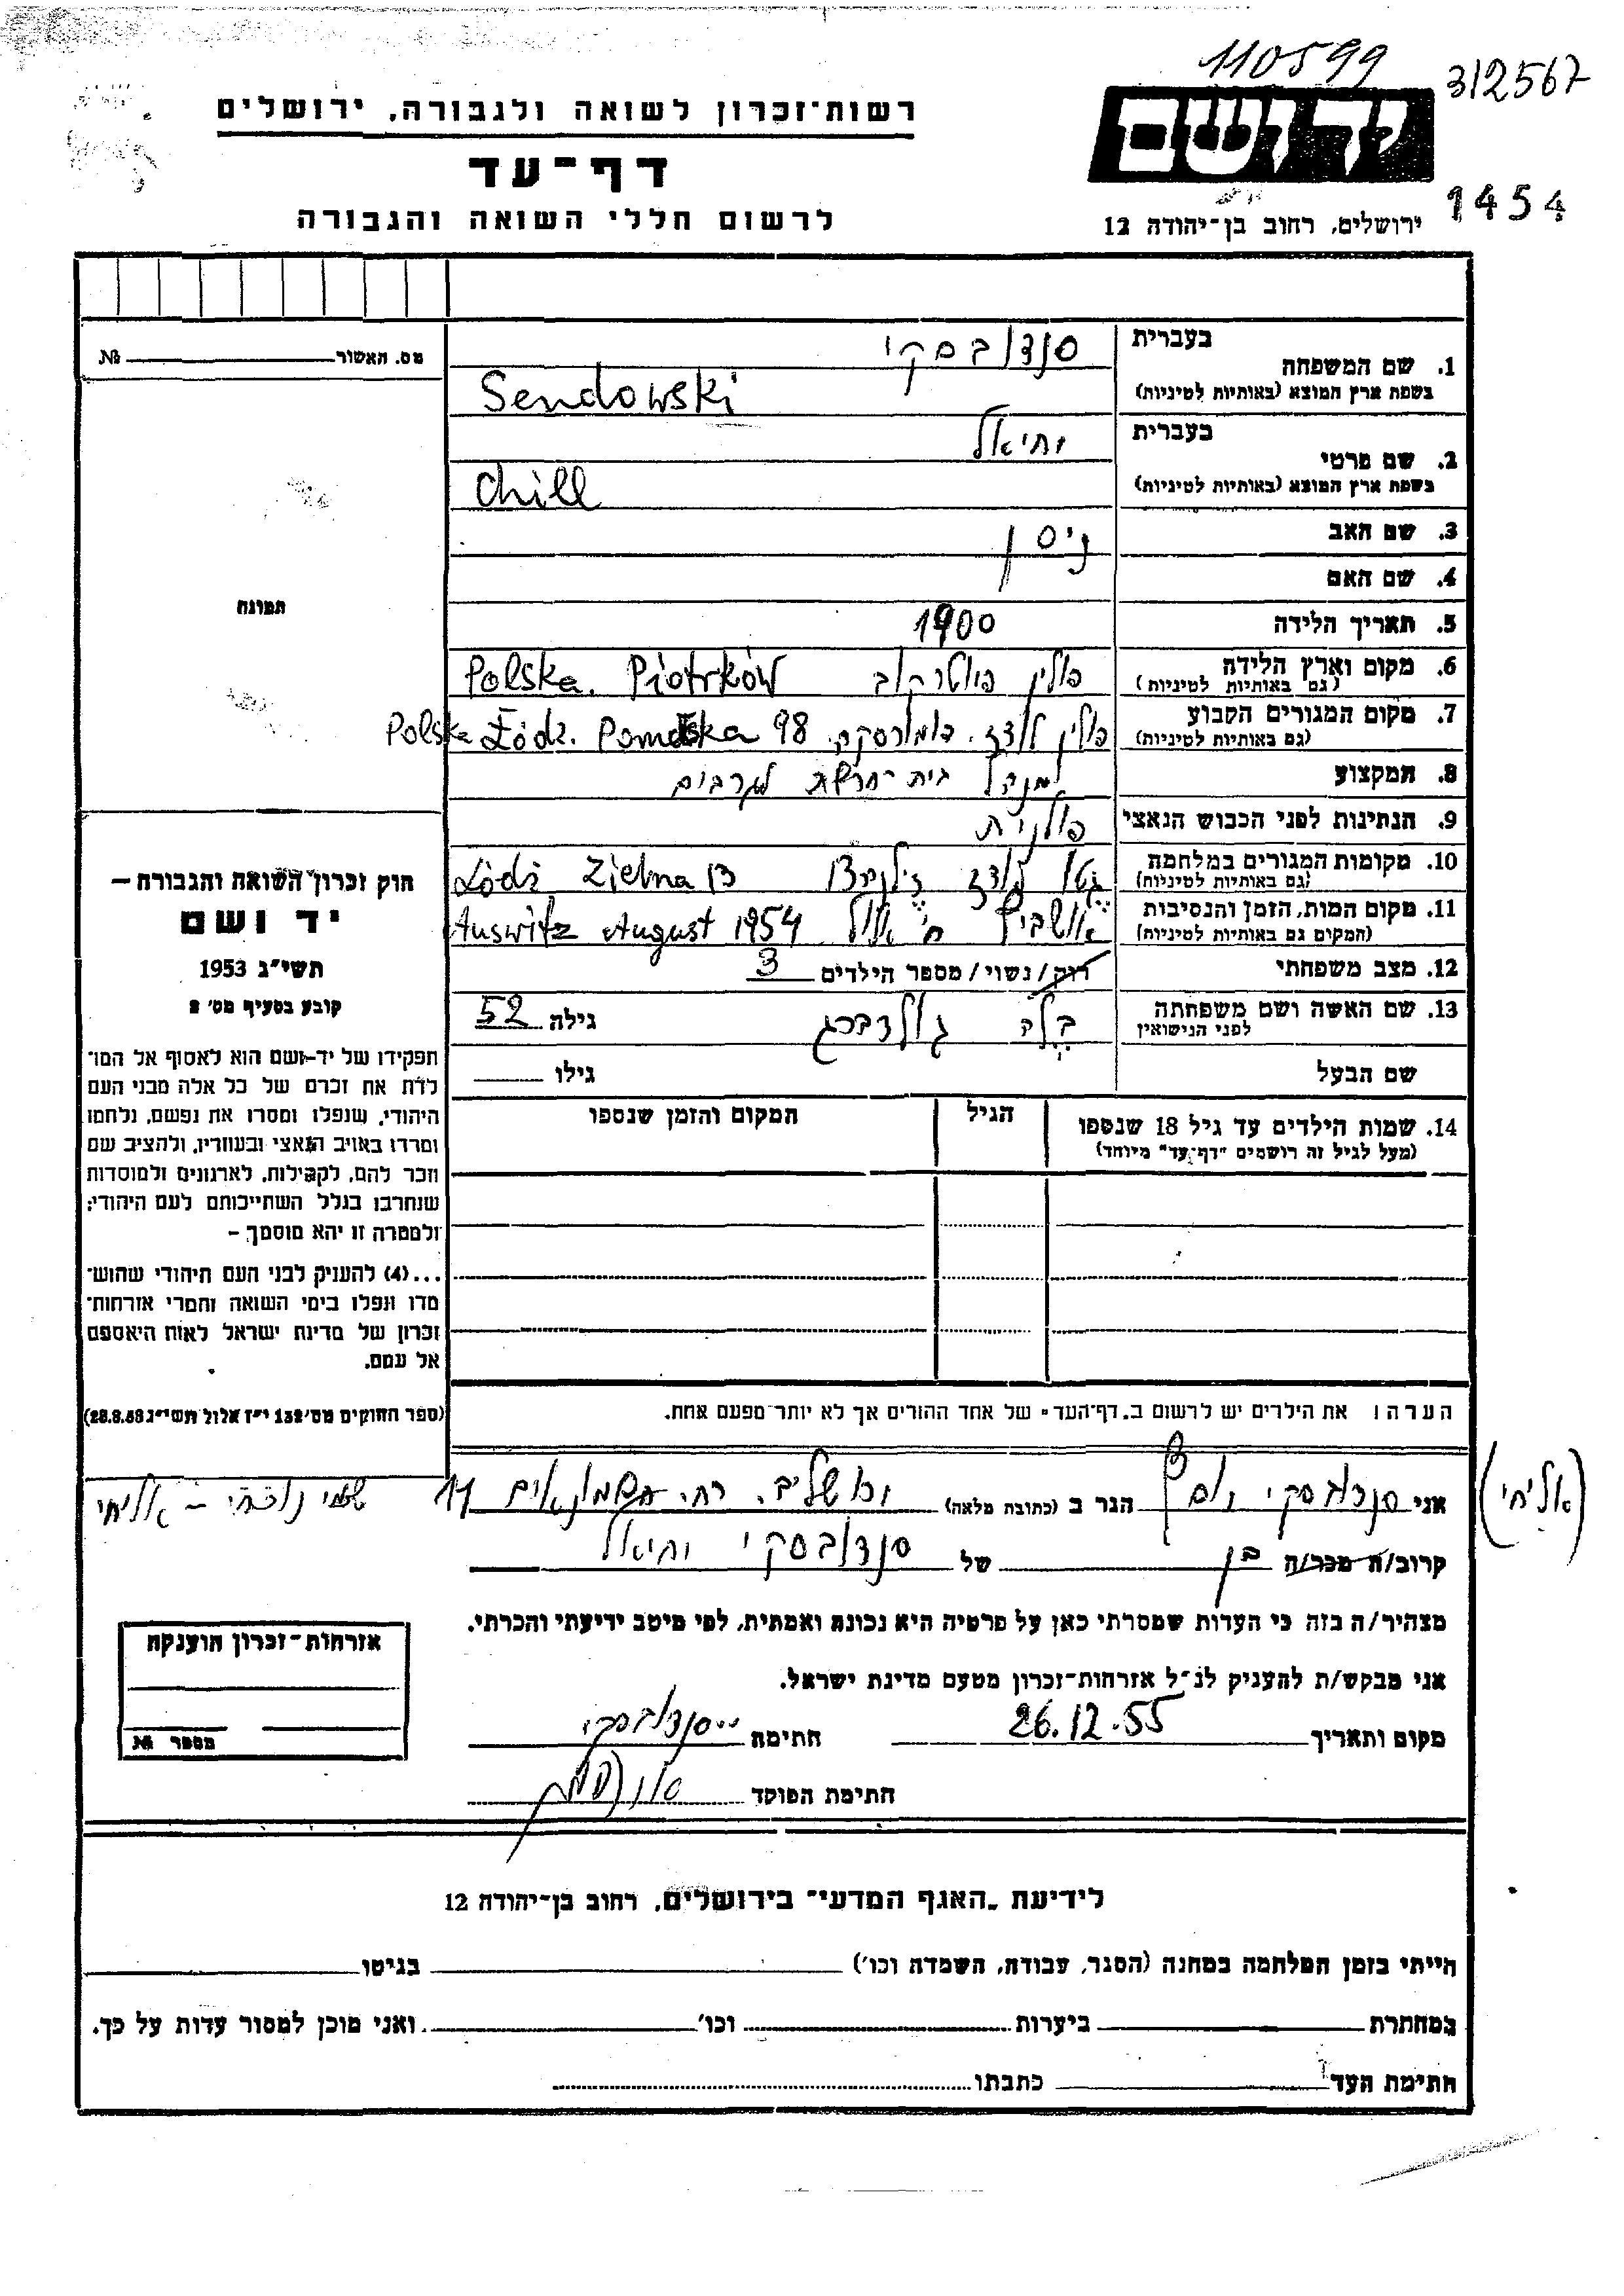 110599
312567
יד ושם
1454
רשות־זכרון לשואה ולגבורה, ירושלים
דף־עד
לרשום חללי השואה והגבורה
ירושלים, רחוב בן־יהודה 12
מס. האשור №
תמונה
חוק זכרון השואה והגבורה —
יד ושם
תשי״ג 1953
קובע בסעיף מס׳ 2
תפקידו של יד־ושם הוא לאסוף אל המו־
לדת את זכרם של כל אלה מבני העם
היהודי, שנפלו ומסרו את נפשם, נלחמו
ומרדו באויב הנאצי ובעוזריו, ולהציב שם
וזכר להם, לקהילות, לארגונים ולמוסדות
שנחרבו בגלל השתייכותם לעם היהודי;
ולמטרה זו יהא מוסמך —
...(4) להעניק לבני העם היהודי שהוש־
מדו ונפלו בימי השואה והמרי אזרחות־
זכרון של מדינת ישראל לאות היאספם
אל עמם.
(ספר החוקים מס׳ 132 י״ז אלול תשי״ג 28.8.53)
בעברית סנדובסקי
1. שם המשפחה
בשפת ארץ המוצא (באותיות לטיניות) Sendowski
בעברית יחיאל
2. שם פרטי
בשפת ארץ המוצא (באותיות לטיניות) Chill
3. שם האב ניסן
4. שם האם
5. תאריך הלידה 1900
6. מקום וארץ הלידה פולין פיוטרקוב Polska. Piotrków
(גם באותיות לטיניות)
7. מקום המגורים הקבוע פולין לודז. Polska Łódz. 98
(גם באותיות לטיניות)
8. המקצוע מנהל בית־חרשת לגרבים
9. הנתינות לפני הכבוש הנאצי פולנית
10. מקומות המגורים במלחמה גטו לודז Łódź Zielna 13
(גם באותיות לטיניות)
11. מקום המות, הזמן והנסיבות אושביץ אלול Auswitz August 1954
(המקום גם באותיות לטיניות)
12. מצב משפחתי רווק/נשוי/מספר הילדים 3
13. שם האשה ושם משפחתה בלה גולדברג גילה 52
לפני הנישואין
שם הבעל גילו
14. שמות הילדים עד גיל 18 שנספו הגיל המקום והזמן שנספו
(מעל לגיל זה רושמים "דף־עד" מיוחד)
הערה: את הילדים יש לרשום ב„דף־העד" של אחד ההורים אך לא יותר מפעם אחת.
אני סנדובסקי הגר ב (כתובת מלאה) ירושלים. רח. חשמונאים 11
(אליחי)
שמי נוכחי - אליחי
קרוב/ה מכר/ה בן של סנדובסקי יחיאל
מצהיר/ה בזה כי העדות שמסרתי כאן על פרטיה היא נכונה ואמתית, לפי מיטב ידיעתי והכרתי.
אני מבקש/ת להעניק לנ״ל אזרחות־זכרון מטעם מדינת ישראל.
מקום ותאריך 26.12.55 חתימה סנדובסקי
חתימת הפוקד
אזרחות־זכרון הוענקה
מספר №
לידיעת „האגף המדעי" בירושלים, רחוב בן־יהודה 12
הייתי בזמן המלחמה במחנה (הסגר, עבודה, השמדה וכו׳) בגיטו
במחתרת ביערות וכו׳ ואני מוכן למסור עדות על כך.
חתימת העד כתבתו